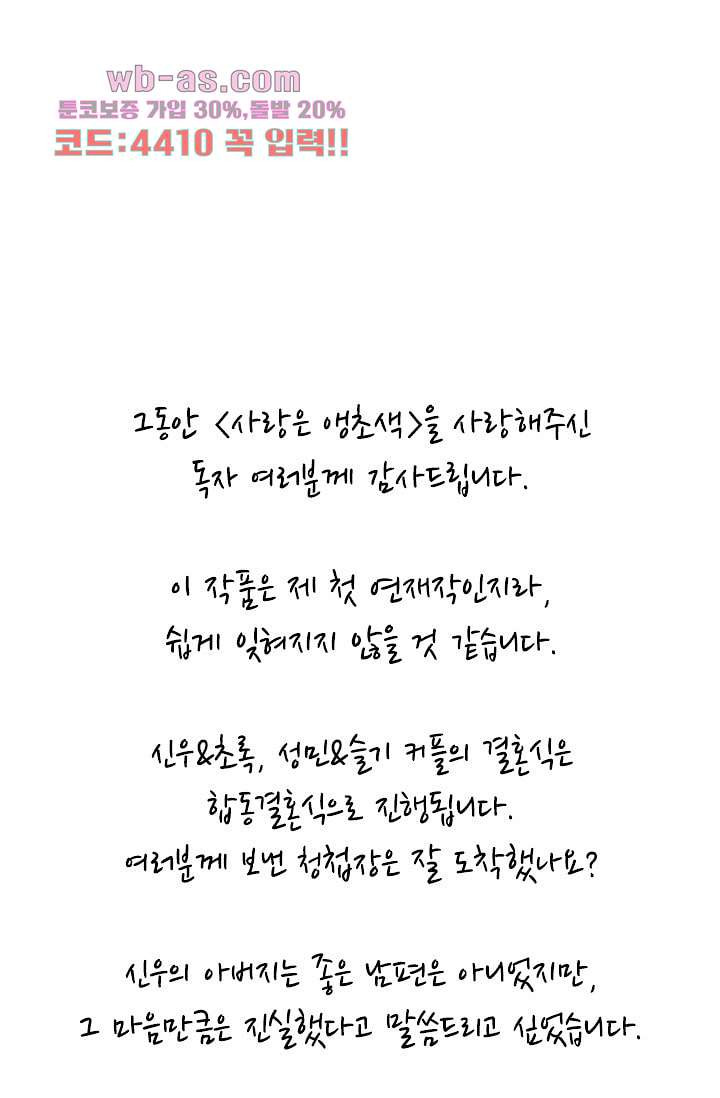 wb-as.com
툰코보증 가입 30%,돌발 20%
코드:4410 꼭 입력!!
그동안 <사랑은 앵초색>을 사랑해주신
독자 여러분께 감사드립니다.
이 작품은 제 첫 연재작인지라,
쉽게 잊혀지지 않을 것 같습니다.
신우&초록, 성민&슬기 커플의 결혼식은
합동결혼식으로 진행됩니다.
여러분께 보낸 청첩장은 잘 도착했나요?
신우의 아버지는 좋은 남편은 아니었지만,
그 마음만큼은 진실했다고 말씀드리고 싶었습니다.